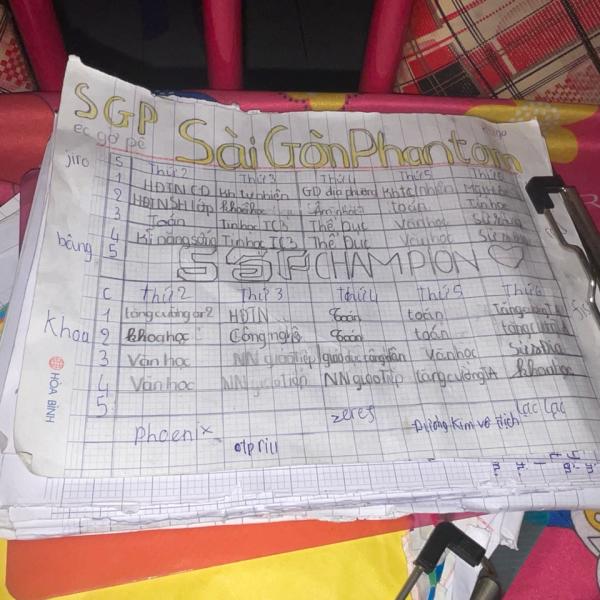 SGP Sài Gòn Phantom
ec gơ pê
jiro S Thứ 2 Thứ 3 Thứ 4 Thứ 5
1 HĐTN CD Khtự nhiên GD địa phương Khtự nhiên
2 HĐTN SH lớp Khoa học Âm nhạc toán Tin học
3 Toán Tin học IC3 Thể Dục Văn học Sử
băng 4 Kĩ năng sống Tin học IC3 Thể Dục Văn học Sử
5 SGP CHAMPION
C Thứ 2 Thứ 3 Thứ 4 Thứ 5 Thứ 6
1 tăng cường HĐTN Toán toán Tăng cường
Khoa 2 khoa học Công nghệ Toán toán tăng cường
3 Văn học NN giao tiếp giáo dục công dân Văn học Sử Địa
4 Văn học NN giao tiếp NN giao tiếp tăng cường khoa học
5
phoenix otp riu zeref Đường Kim vô địch Lạc Lạc
HÒA BÌNH